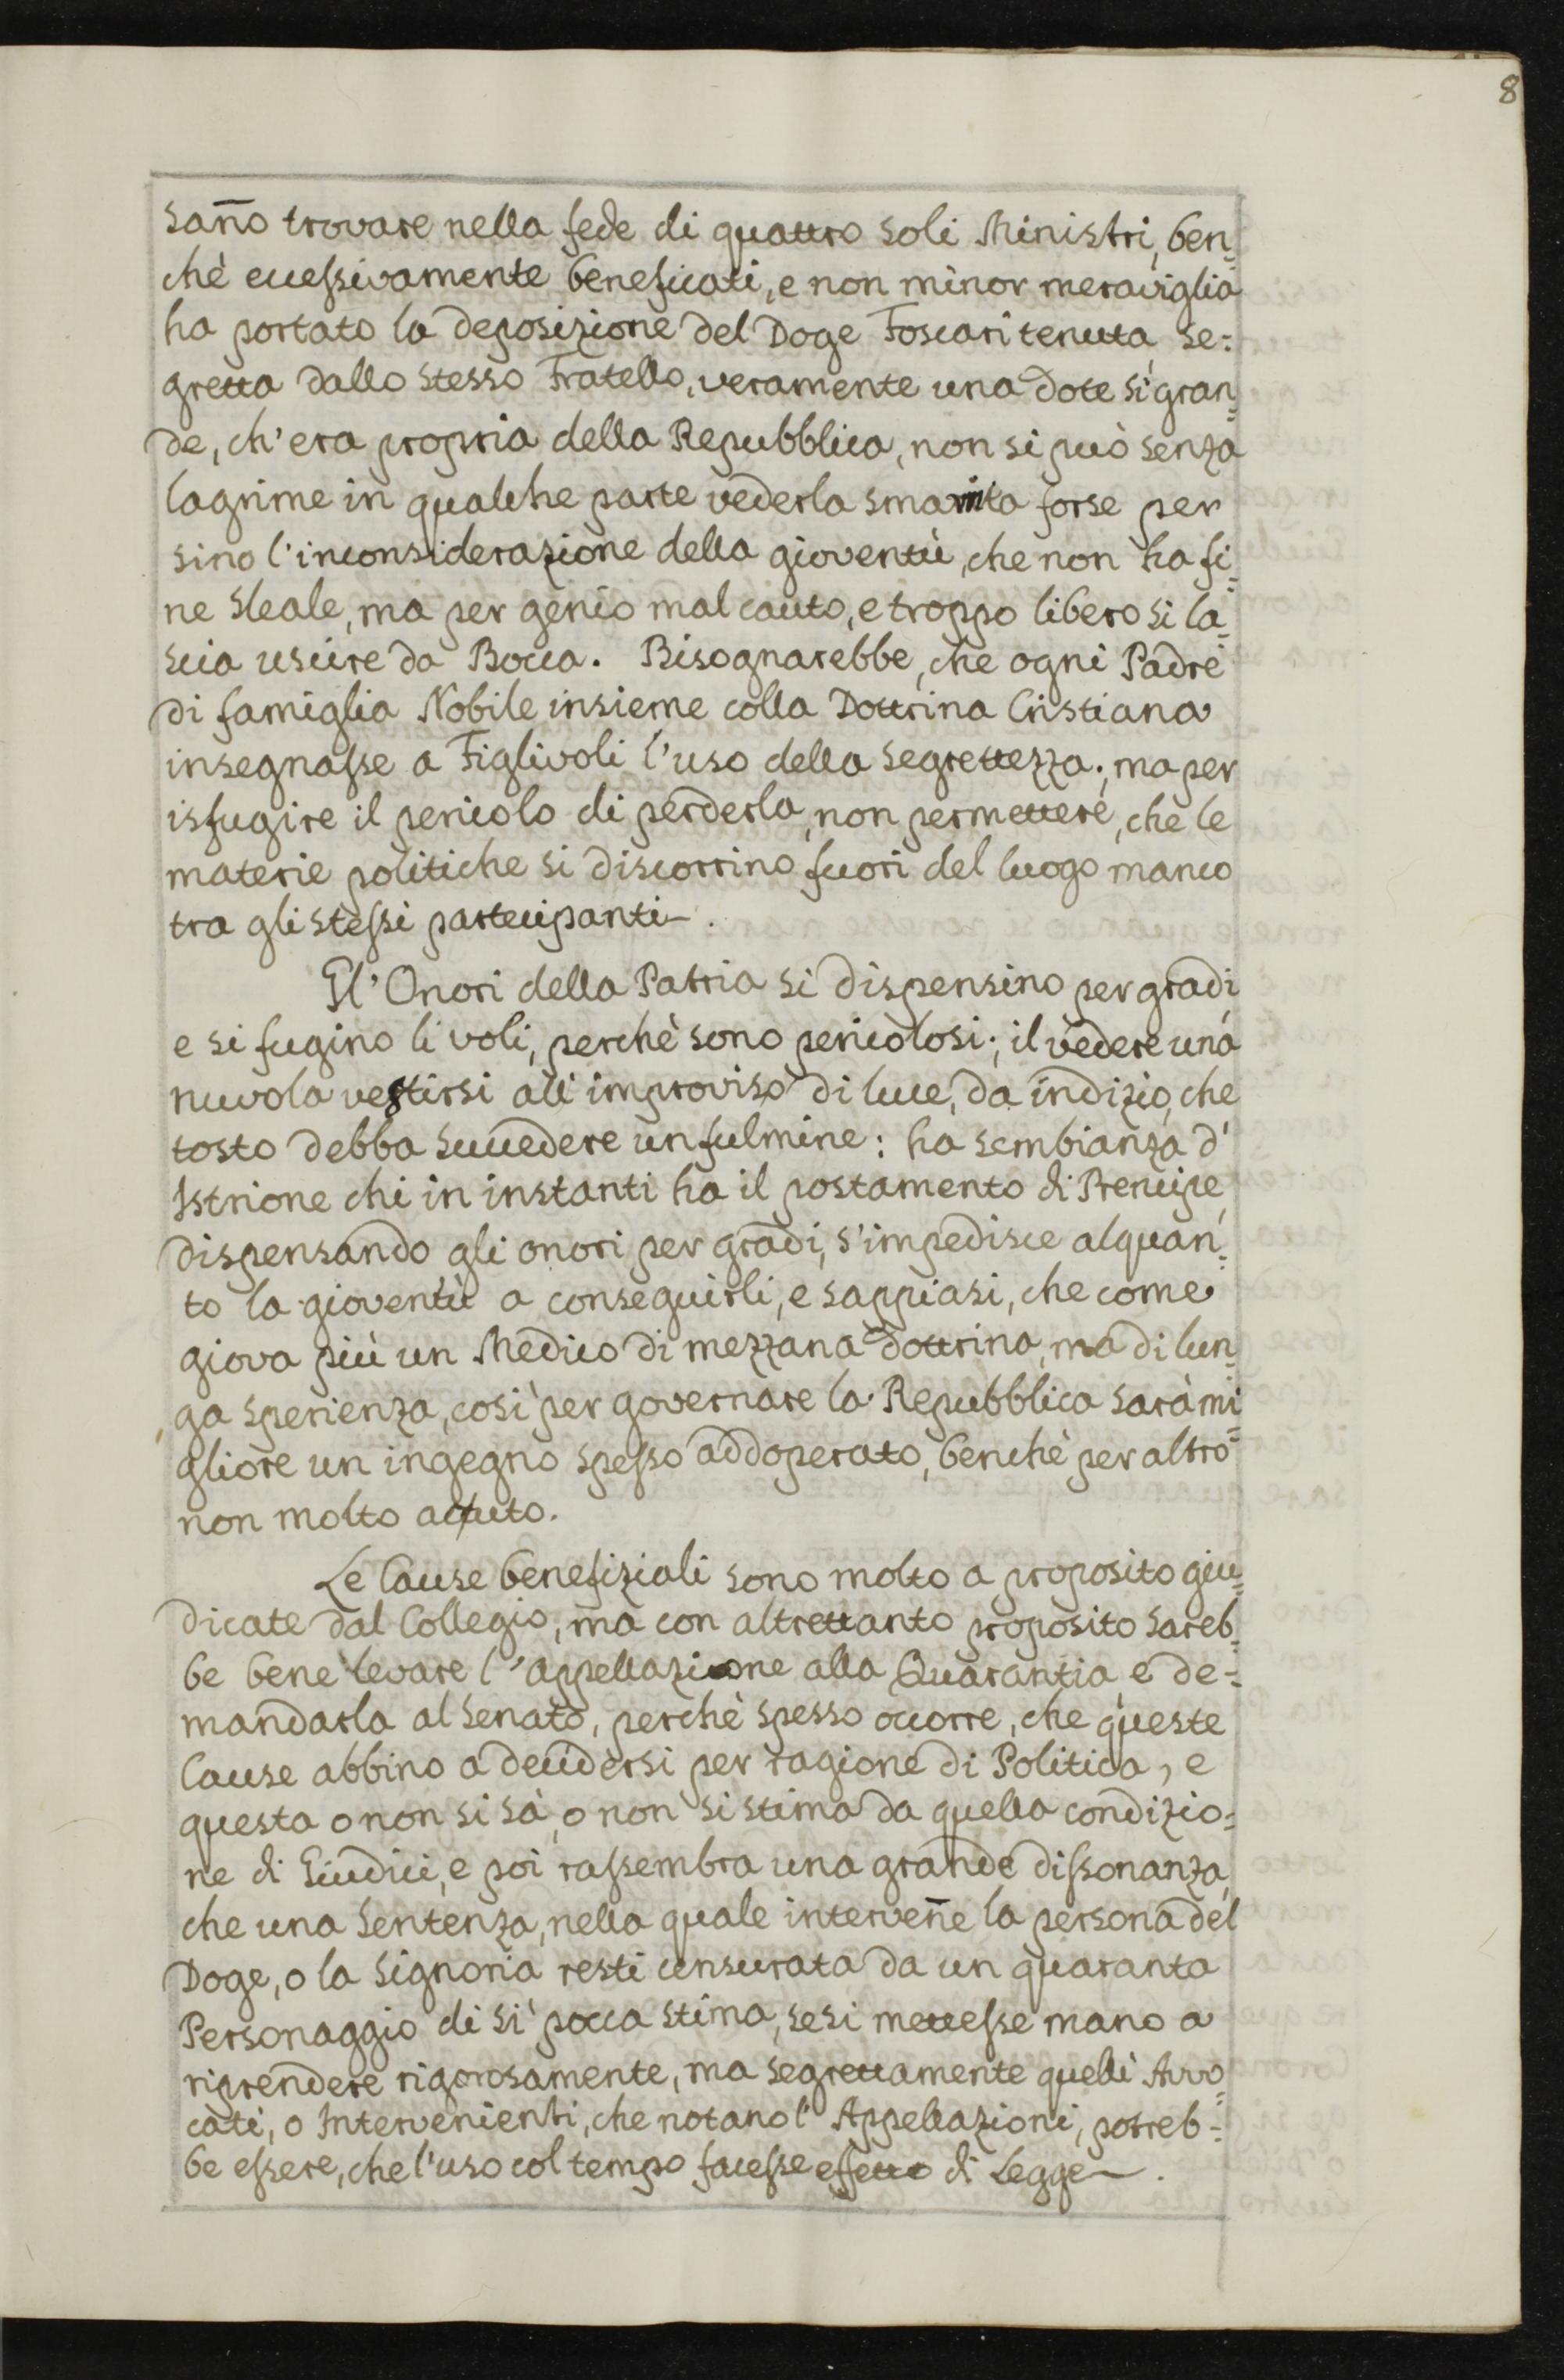 8
sano̅ trovare nella fede di quattro soli Ministri, ben=
chè eccessivamente beneficati, e non minor meraviglia
ha portato la deposizione del Doge Foscari tenuta se:
gretta dallo stesso Fratello, veramente una dote sì gran=
de, ch'era propria della Repubblica, non si può senza
lagrime in qualche parte vederla smarrita forse per
sino l'inconsiderazione della gioventù, che non ha fi=
ne sleale, ma per genio mal cauto, e troppo libero si la=
scia uscire da Bocca. Bisognarebbe, che ogni Padre
di famiglia Nobile insieme colla Dottrina Cristiana
insegnasse a Figlivoli l'uso della segrettezza; ma per
isfugire il pericolo di perderla, non permettere, che le
materie politiche si discorrino fuori del luogo manco
tra gli stessi partecipanti.
Gl'Onori della Patria si dispensino per gradi
e si fugino li voli, perchè sono pericolosi; il vedere una
nuvola vestirsi all'improviso di luce, da indizio, che
tosto debba succedere un fulmine: ha sembianza d'
Istrione chi in instanti ha il postamento di Prencipe,
dispensando gli onori per gradi, s'impedisce alquan=
to la gioventù a conseguirli, e sappiasi, che come
giova più un Medico di mezzana dottrina, ma di lun=
ga sperienza, così per governare la Repubblica sarà mi=
gliore un ingegno spesso addoperato, benchè per altro
non molto accuto.
Le Cause benefiziali sono molto a proposito giu=
dicate dal Collegio, ma con altrettanto proposito sareb=
be bene levare l'appellazione alla Quarantia e de=
mandarla al Senato, perchè spesso occorre, che queste
Cause abbino a decidersi per ragione di Politica, e
questa o non si sà, o non si stima da quella condizio=
ne di Giudici, e poi rassembra una grande dissonanza,
che una Sentenza, nella quale interven̅e la persona del
Doge, o la Signoria resti censurata da un quaranta
Personaggio di sì pocca stima, se si mettesse mano a
riprendere rigorosamente, ma segrettamente quelli Avvo=
cati, o Intervenienti, che notano l'Appellazioni, potreb=
be essere, che l'uso col tempo facesse effetto di Legge.